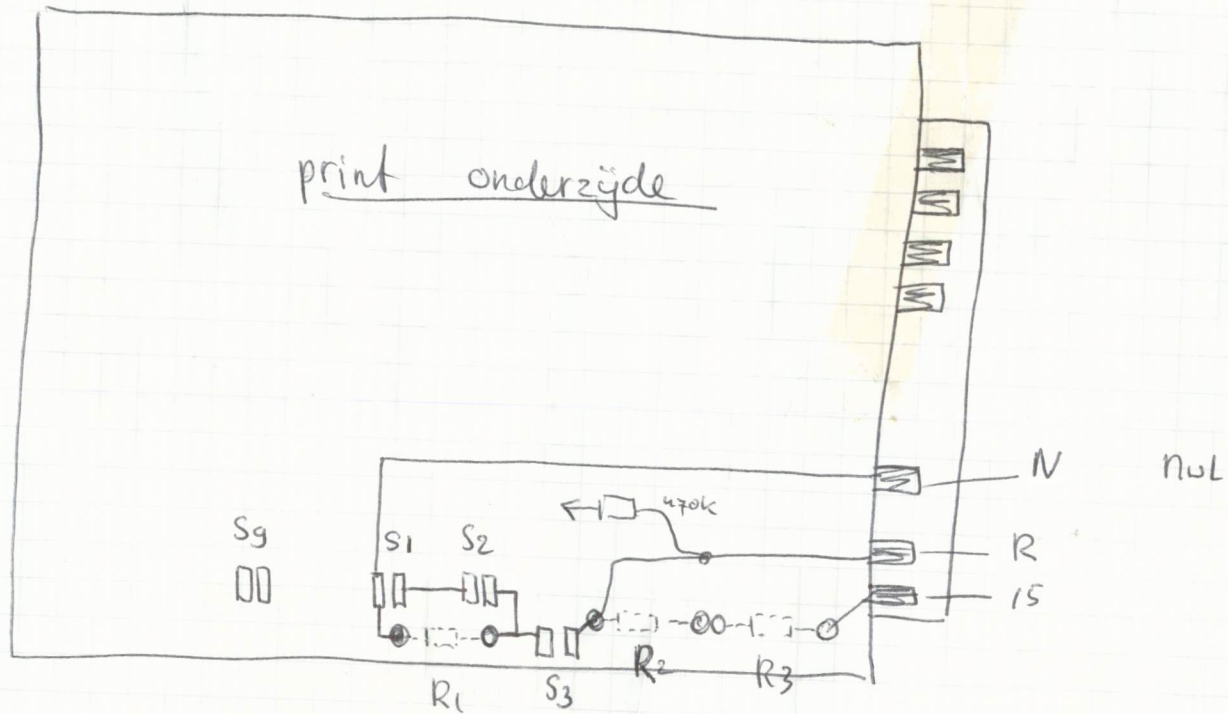 print onderzijde
N nul
470k
R
Sg S1 S2
15
R1 S3 R2 R3